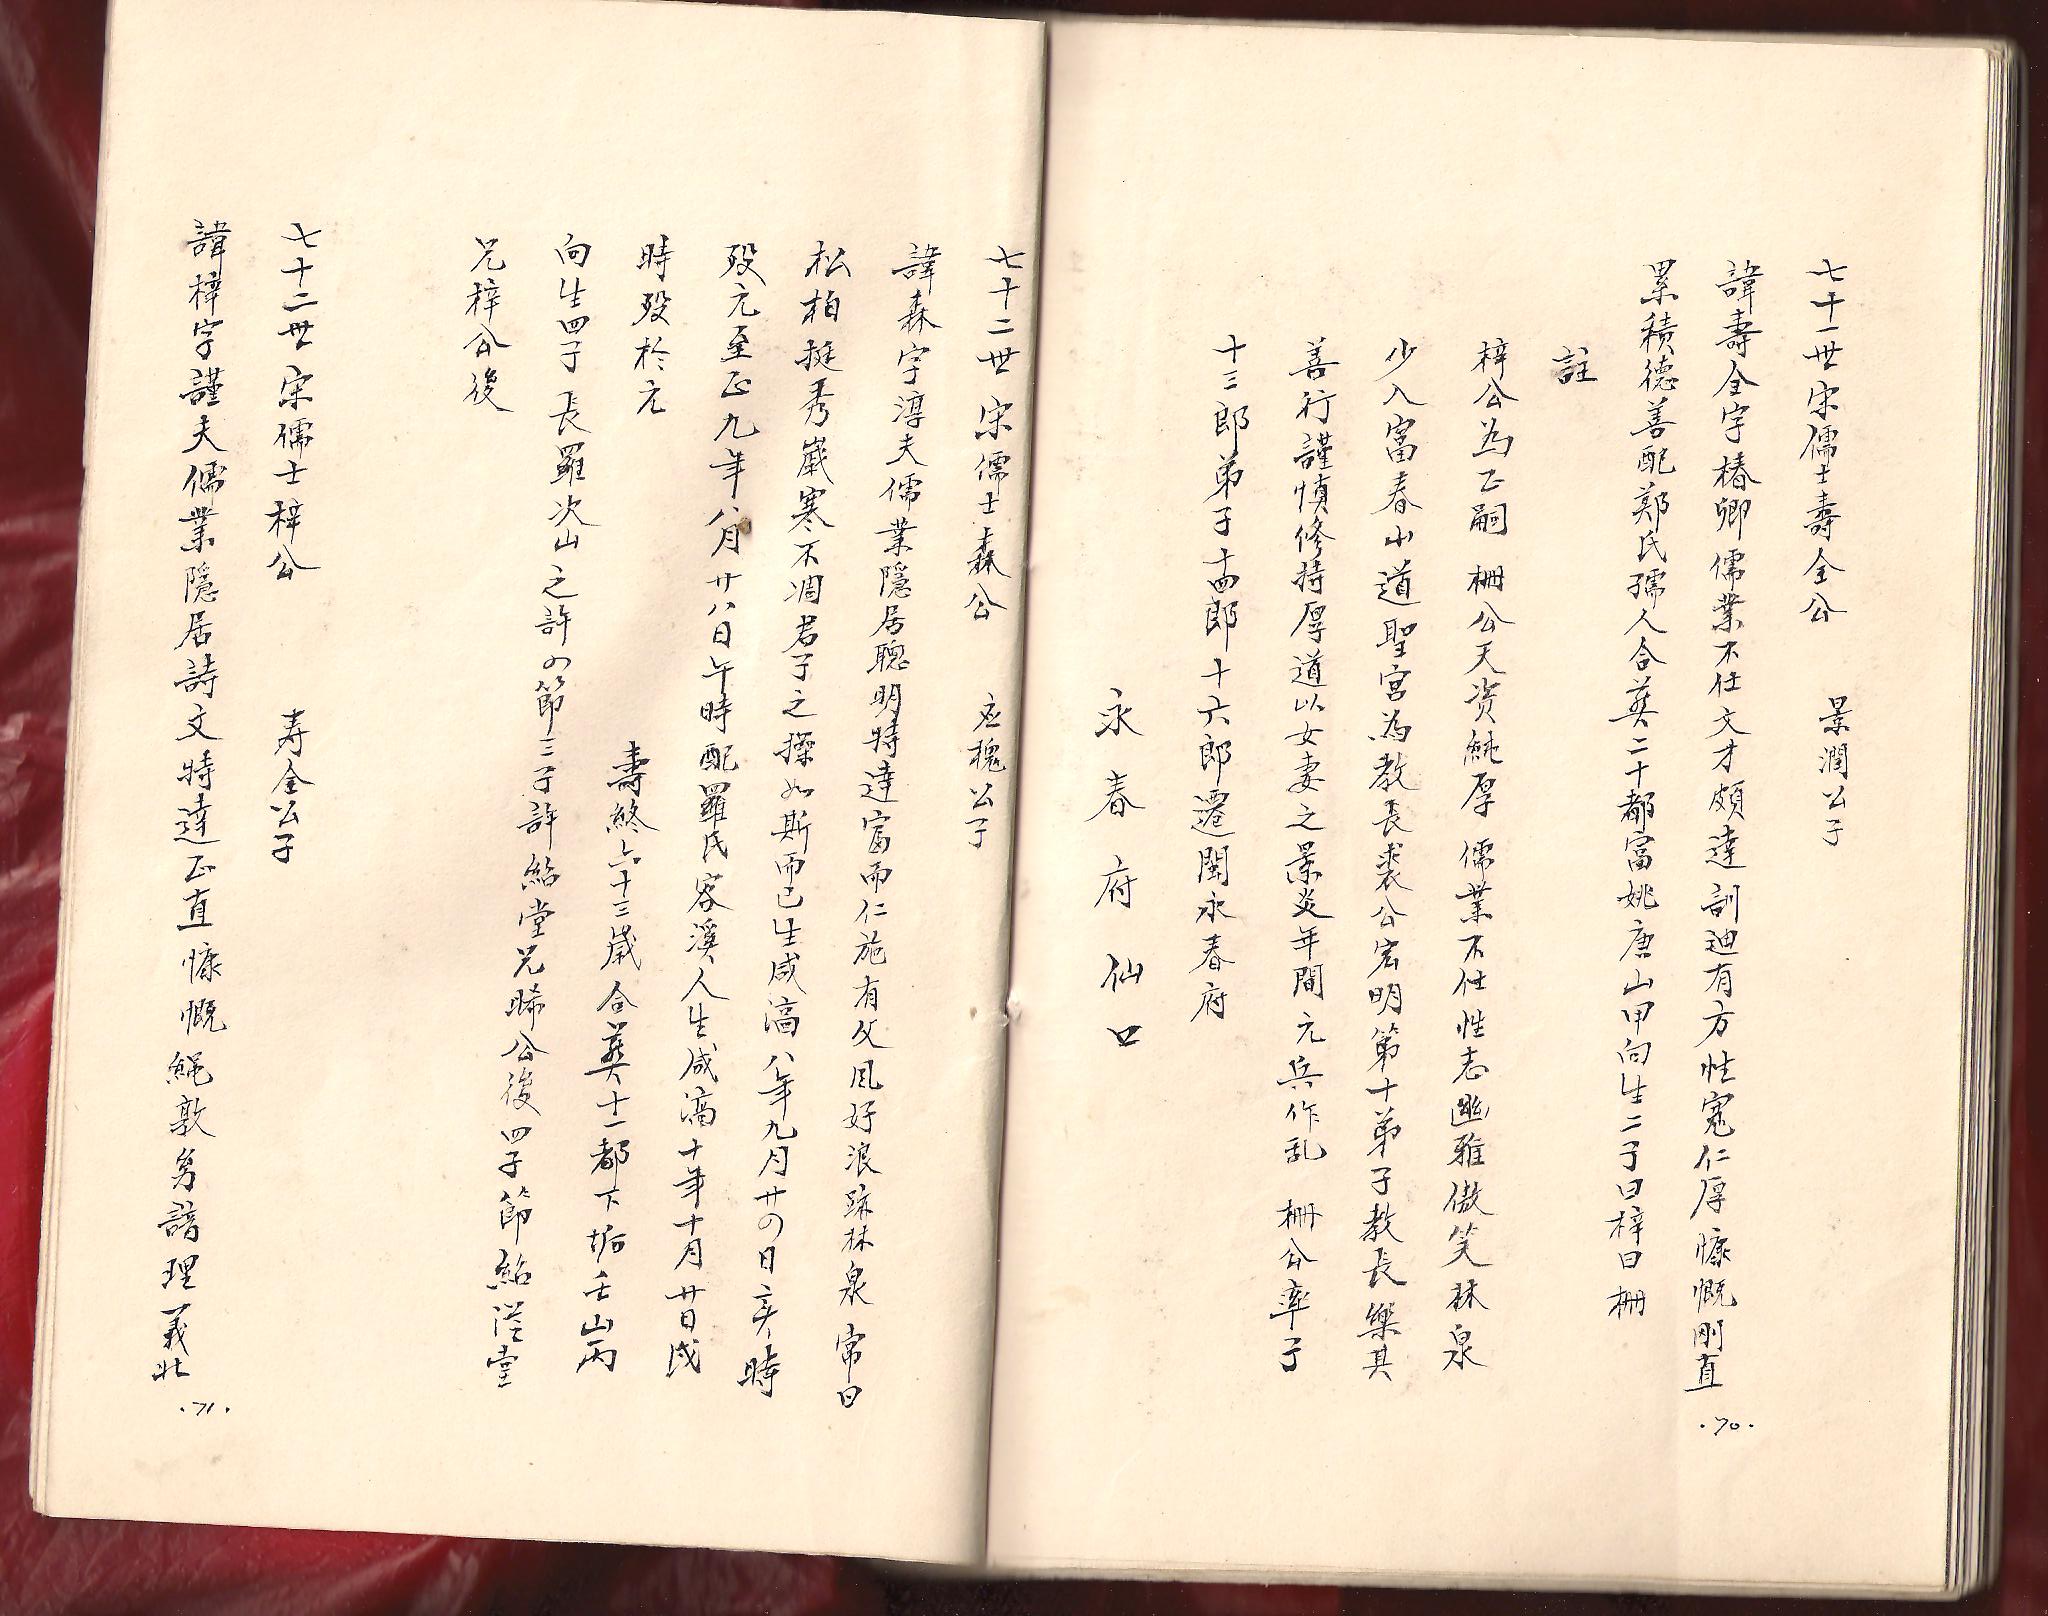 七十一世宋儒士壽全公　景潤公子
諱壽全字椿卿儒業不仕文才頗達訓迪有方性寬仁厚慷慨剛直
累積德善配鄭氏孺人合葬二十都富姚唐山甲向生二子曰梓曰栅
註
梓公為正嗣 栅公天资純厚 儒業不仕性志幽雅傲笑林泉
少入富春山道聖宮為教長裘公宏明第十弟子教長樂其
善行謹慎修持厚道以女妻之景炎年間 元兵作乱 栅公率子
十三郎弟子十四郎十六郎遷閩永春府
永春府仙口
·70·
七十二世 宋儒士森公　应槐公子
諱森字淳夫儒業隱居聰明特達富而仁施有父風好浪跡林泉常曰
松柏挺秀嵗寒不凋君子之操如斯而已生咸淳八年九月廿の日亥時
殁元至正九年八月廿八日午時配羅氏容溪人生咸淳十年十月廿日戌
時殁於元　壽終六十三嵗合葬十一都下垢壬山丙
向生四子長羅次山之許の節三子許紿堂兄晞公後四子節紿從堂
兄梓公後
七十二世宋儒士梓公　寿全公子
諱梓字謹夫儒業隱居詩文特達正直慷慨繩敦穷諳理義北
·71·